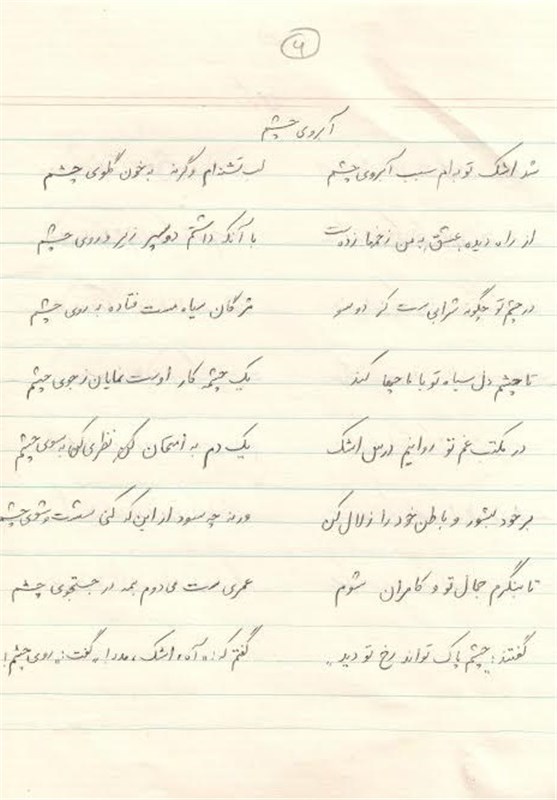 ۶
آبروی چشم
شد اشک تو بدام سبب آبروی چشم لب تشنه‌ام وگرنه به خون گلوی چشم
از راه دیده عشق به من زخمها زده‌ست با آنکه داشتم دو سپر زیر و روی چشم
در چشم تو چگونه شرابی‌ست کز دو سو مژگان سیاه مست فتاده به روی چشم
تا چشم دل سیاه تو با ما چها کند یک چشمه کار اوست نمایان ز جوی چشم
در مکتب غم تو روانیم درس اشک یک دم به امتحان کن نظری کن به سوی چشم
بر خود بشور و باطن خود را زلال کن ورنه چه سود از این که کنی شست و شوی چشم
تا بنگرم جمال تو و کامران شوم عمری‌ست می‌دوم همه در جستجوی چشم
گفتند: «چشم پاک تواند رخ تو دید» گفتم که: «آه، اشک، مدد!» گفت: «روی چشم!